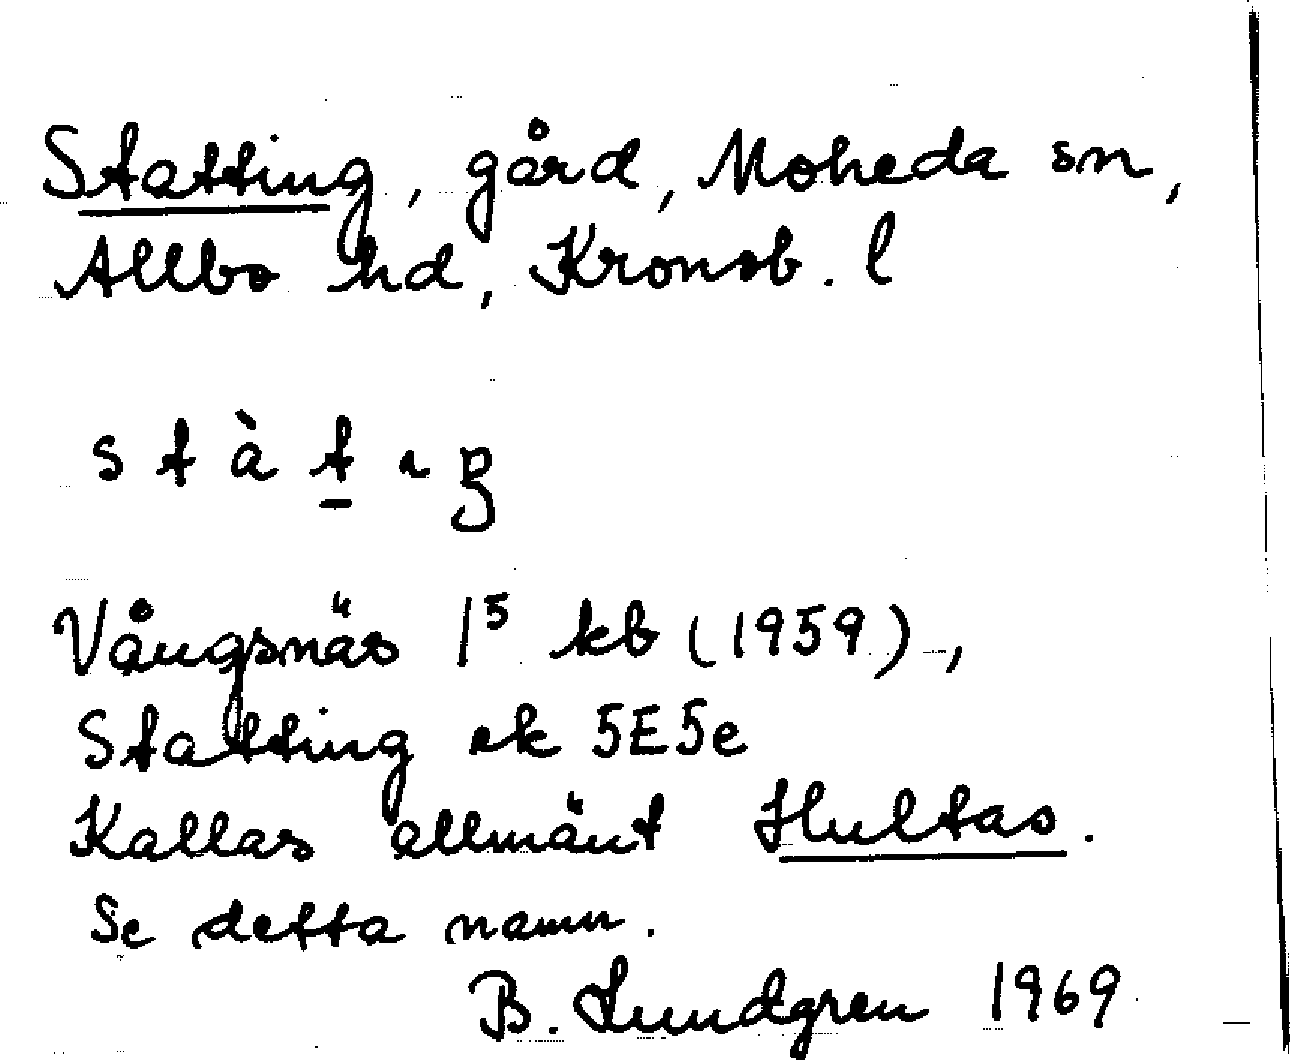 Statting, gård, Moheda sn,
Allbo hd, Kronob. l
s t à t ı ŋ
Vångsnäs 1⁵ kb (1959),
Statting ek 5E5e
Kallas allmänt Hultas.
Se detta namn.
B. Lundgren 1969